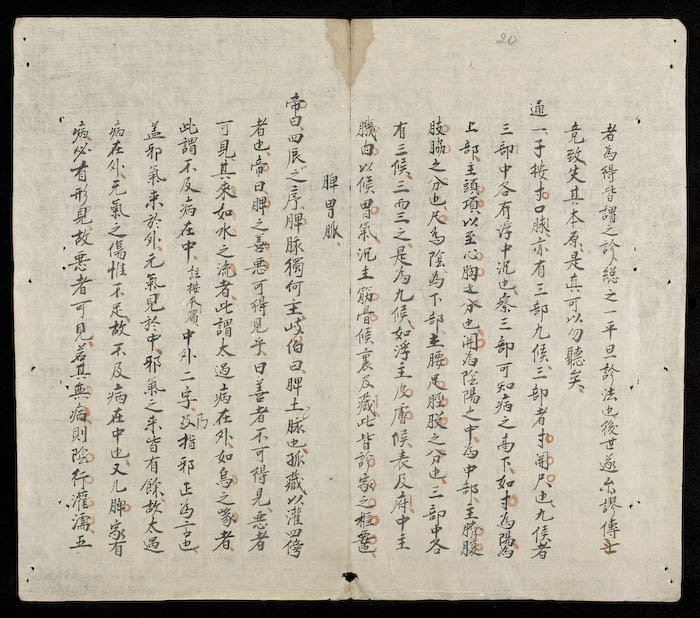 20
者為得皆謂之診總之一平旦診法也後世遂尔謬傳七
竟致失其本原是真可以勿聽矣
通一子按寸口脉亦有三部九候三部者寸関尺也九候者
三部中各有浮中沉也察三部可知病之高下如寸為陽為
上部主頭項以至心胸之分也関為陰陽之中為中部主臍腹
肢脇之分也尺為陰為下部主腰足脛股之分也三部中各
有三候三而三之是為九候如浮主皮膚候表及府中主
機肉以候胃氣沉主筋骨候裏及藏此皆診家之樞
脾胃脈
帝曰四辰之序脾脉獨何主歧伯曰脾土脉也孤藏以灌四傍
者也帝曰脾之善悪可得見乎曰善者不可得見悪者
可見其来如水之流者此謂太過病在外如鳥之喙者
此謂不及病在中註按本篇中外二字乃指邪正為言也
盖邪氣来於外元氣見於中邪氣之来皆有餘故太過
病在外元氣之傷惟不足故不及病在中也又凡脾家有
病必有形見故悪者可見若其無病則陰行灌濡五